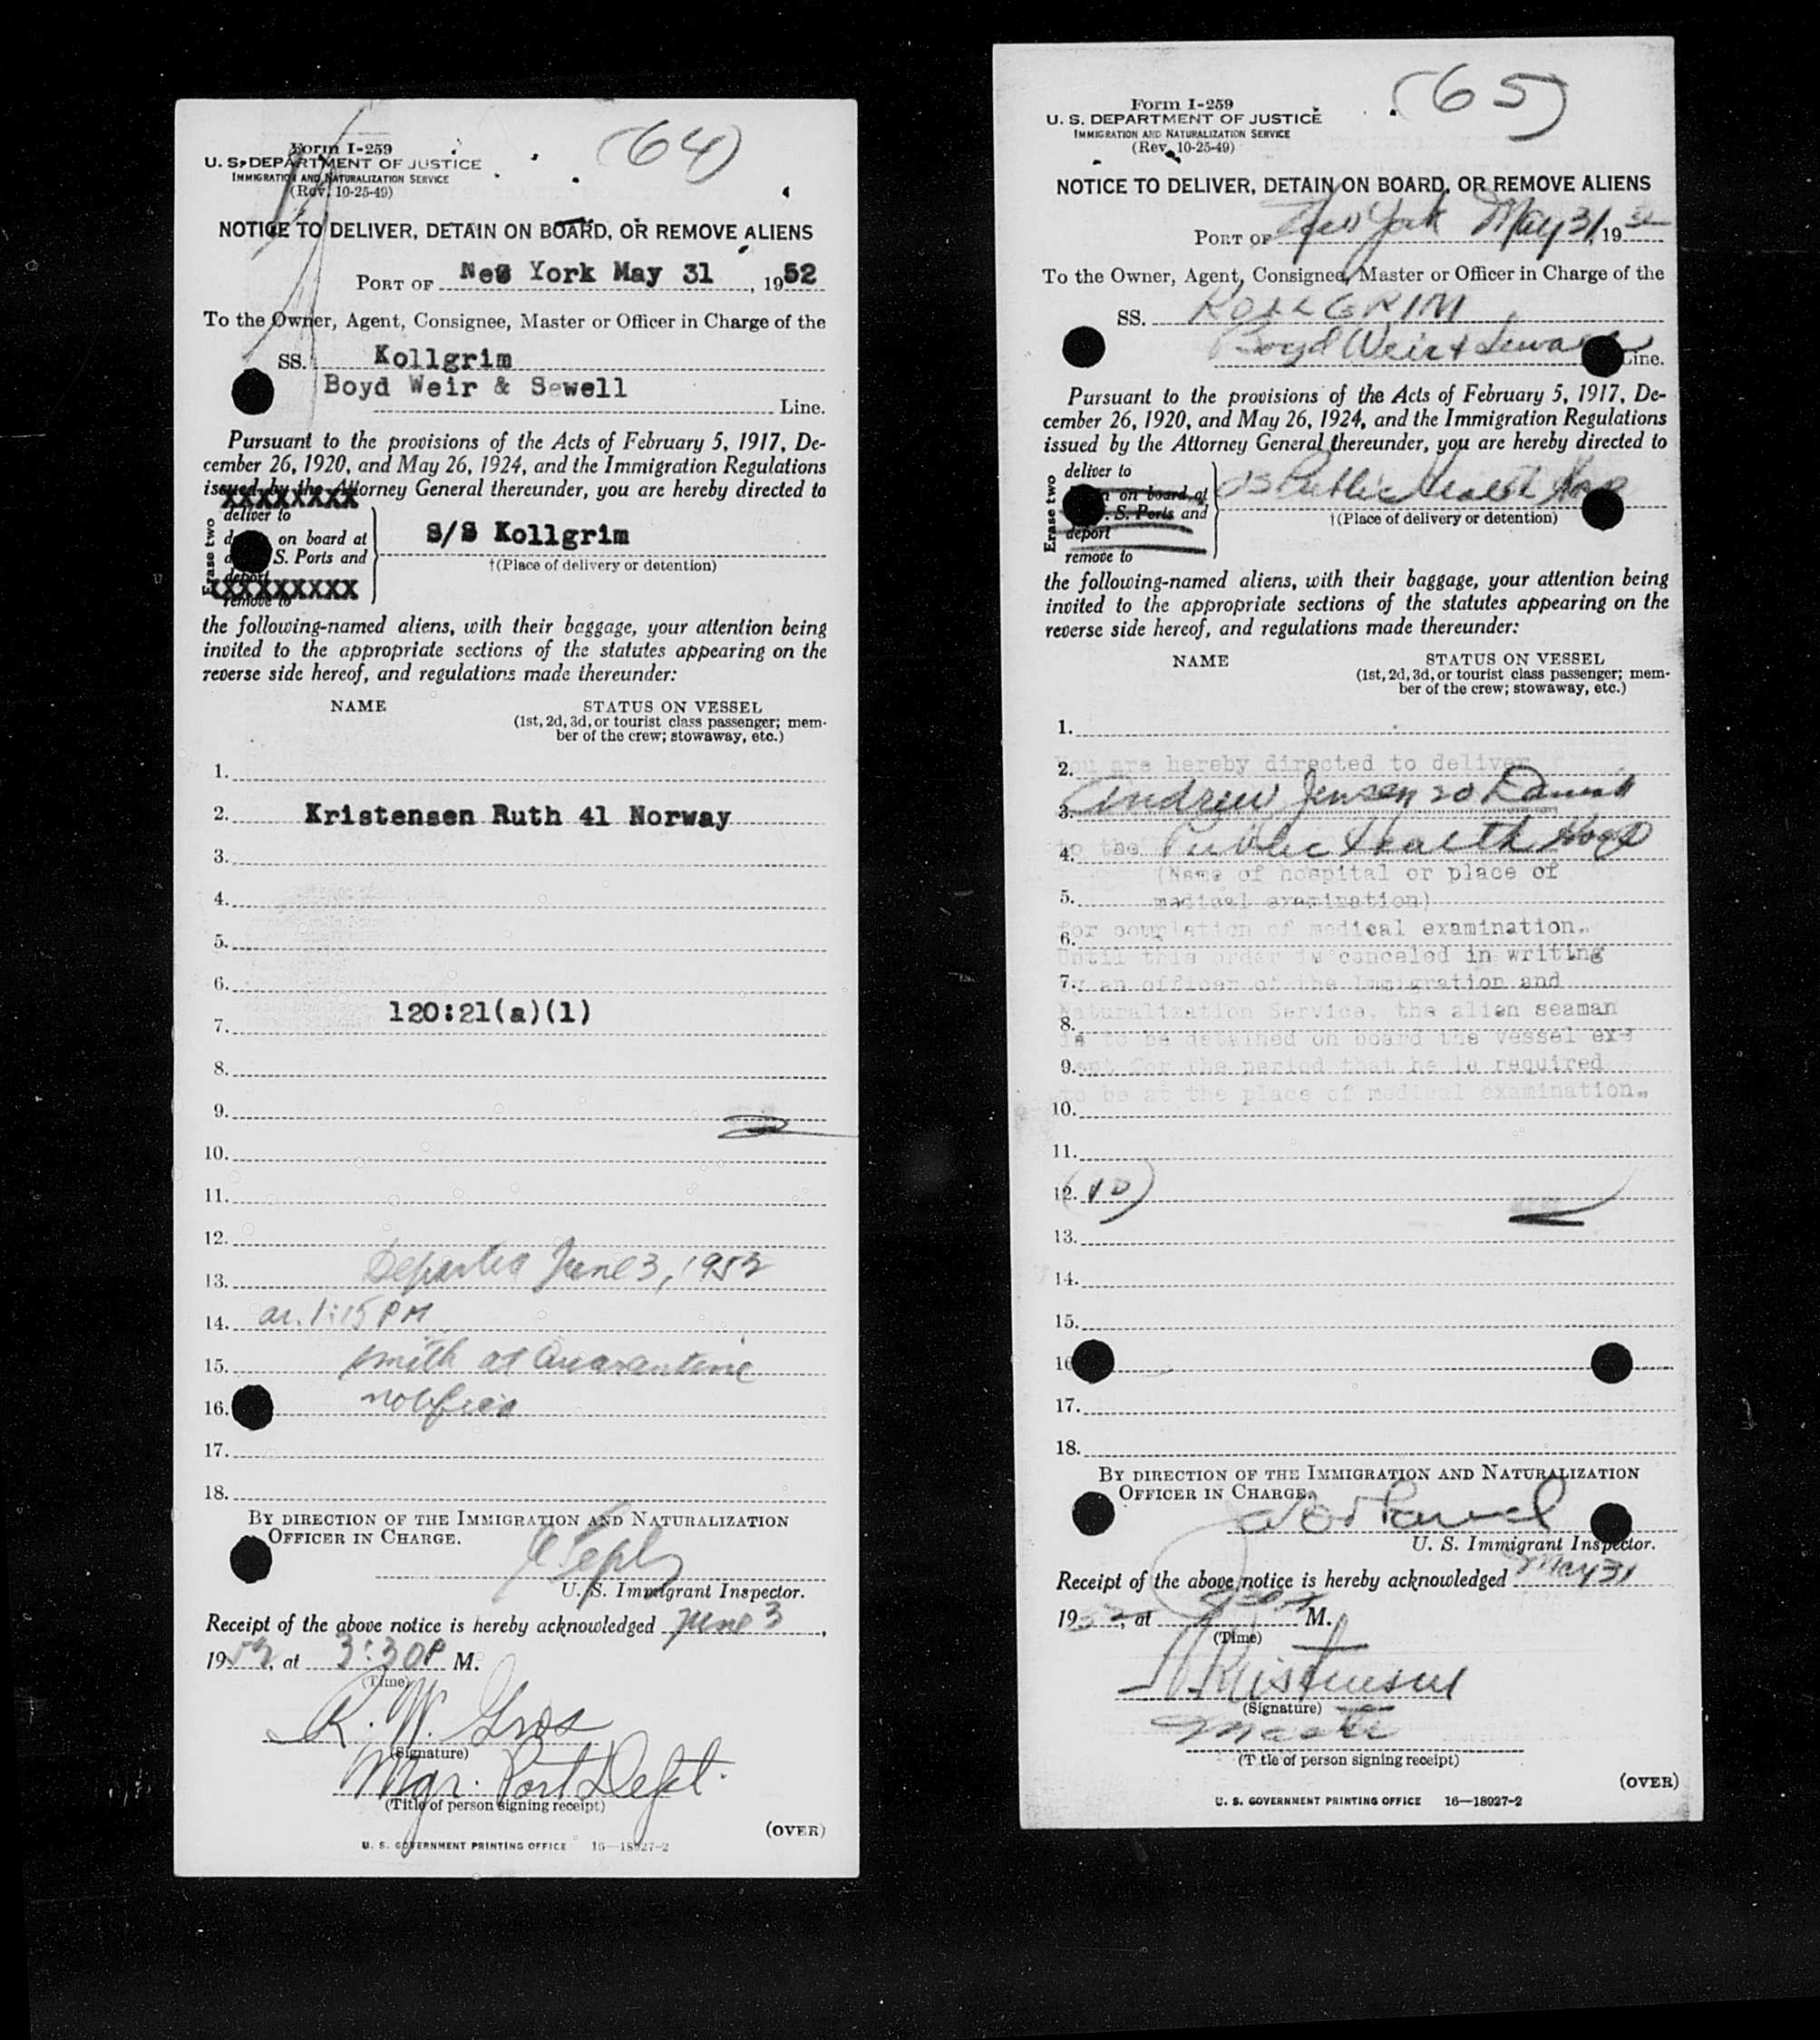 (64)
Form I-259
U. S. DEPARTMENT OF JUSTICE
IMMIGRATION AND NATURALIZATION SERVICE
(Rev. 10-25-49)
NOTICE TO DELIVER, DETAIN ON BOARD, OR REMOVE ALIENS
PORT OF New York May 31, 1952
To the Owner, Agent, Consignee, Master or Officer in Charge of the
SS. Kollgrim
Boyd Weir & Sewell
Line.
Pursuant to the provisions of the Acts of February 5, 1917, De-
cember 26, 1920, and May 26, 1924, and the Immigration Regulations
issued by the Attorney General thereunder, you are hereby directed to
XXXXXXXX
Erase two
deliver to
on board at
S. Ports and
deport
XXXXXXXXX
remove to
S/S Kollgrim
†(Place of delivery or detention)
the following-named aliens, with their baggage, your attention being
invited to the appropriate sections of the statutes appearing on the
reverse side hereof, and regulations made thereunder:
NAME
STATUS ON VESSEL
(1st, 2d, 3d, or tourist class passenger; mem-
ber of the crew; stowaway, etc.)
1.
2. Kristensen Ruth 41 Norway
3.
4.
5.
6.
7. 120:21(a)(1)
8.
9.
10.
11.
12.
13. Departed June 3, 1952
14. at 1:15 PM
15. Smith at Quarantine
16. notified
17.
18.
BY DIRECTION OF THE IMMIGRATION AND NATURALIZATION
OFFICER IN CHARGE.
U. S. Immigrant Inspector.
Receipt of the above notice is hereby acknowledged June 3,
1952, at 3:30 P M.
(Time)
R. W.
(Signature)
Mgr. Port Dept.
(Title of person signing receipt)
(OVER)
U. S. GOVERNMENT PRINTING OFFICE 16—18927-2
(65)
Form I-259
U. S. DEPARTMENT OF JUSTICE
IMMIGRATION AND NATURALIZATION SERVICE
(Rev. 10-25-49)
NOTICE TO DELIVER, DETAIN ON BOARD, OR REMOVE ALIENS
PORT OF New York May 31, 1952
To the Owner, Agent, Consignee, Master or Officer in Charge of the
SS. KOLLGRIM
Boyd Weir & Line.
Pursuant to the provisions of the Acts of February 5, 1917, De-
cember 26, 1920, and May 26, 1924, and the Immigration Regulations
issued by the Attorney General thereunder, you are hereby directed to
Erase two
deliver to
on board at
S. Ports and
deport
remove to
US Public Health Hosp
†(Place of delivery or detention)
the following-named aliens, with their baggage, your attention being
invited to the appropriate sections of the statutes appearing on the
reverse side hereof, and regulations made thereunder:
NAME
STATUS ON VESSEL
(1st, 2d, 3d, or tourist class passenger; mem-
ber of the crew; stowaway, etc.)
1.
2. You are hereby directed to deliver
3. Andrew Jensen 20 Danish
4. to the Public Health Hosp
(Name of hospital or place of
5. medical examination)
for completion of medical examination.
6.
Until this order is canceled in writing
7. by an officer of the Immigration and
Naturalization Service, the alien seaman
8.
is to be detained on board the vessel ex-
9. cept for the period that he is required
to be at the place of medical examination.
10.
11.
12. (10)
13.
14.
15.
16
17.
18.
BY DIRECTION OF THE IMMIGRATION AND NATURALIZATION
OFFICER IN CHARGE.
U. S. Immigrant Inspector.
Receipt of the above notice is hereby acknowledged May 31
1952, at M.
(Time)
Kristensen
(Signature)
Master
(Title of person signing receipt)
(OVER)
U. S. GOVERNMENT PRINTING OFFICE 16—18927-2